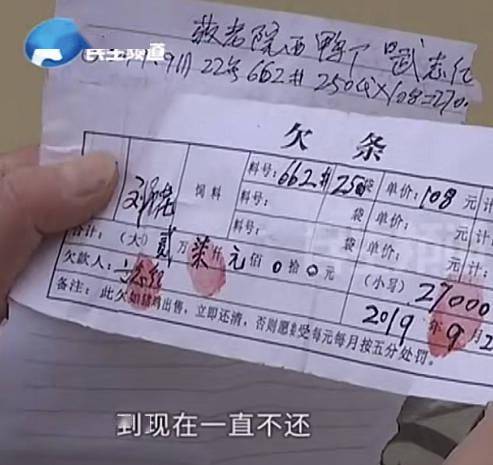 民生频道
敬老院西鸭厂 武志红
9月22号 662# 250代×108=270
欠条
饲料
料号:662# 250袋 单价:108元 计
料号: 袋 单价: 元 计:
料号: 袋 单价: 元 计:
合计:(大)贰万柒仟元佰0拾0元 (小写)27000
欠款人:
2019年9月2
备注:此欠如猪鸡出售,立即还清,否则愿受每元每月按五分处罚。
到现在一直不还